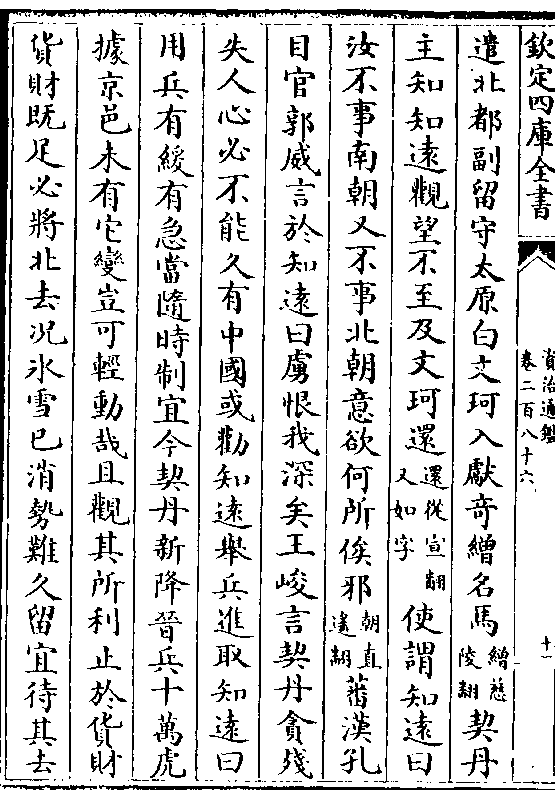 欽定四庫全書
資治通鑑
卷二百八十六
十一
遣北都副留守太原白文珂入獻竒繒名馬繒慈陵翻契丹
主知知遠觀望不至及文珂還還從宣翻又如字使謂知遠曰
汝不事南朝又不事北朝意欲何所俟邪朝直遙翻蕃漢孔
目官郭威言於知遠曰虜恨我深矣王峻言契丹貪殘
失人心必不能久有中國或勸知遠舉兵進取知遠曰
用兵有緩有急當隨時制宜今契丹新降晉兵十萬虎
據京邑未有它變豈可輕動哉且觀其所利止於貨財
貨財既足必將北去况氷雪已消勢難久留宜待其去